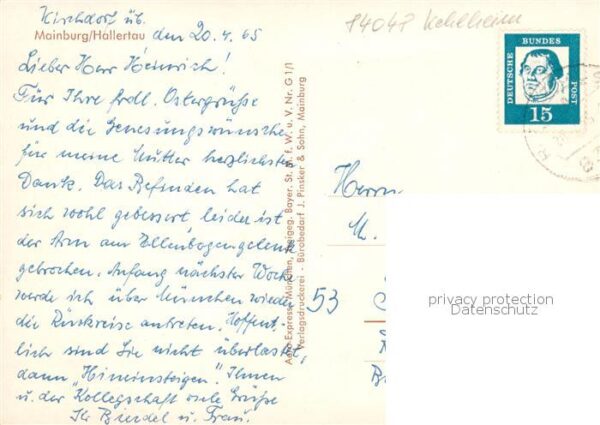 Kirchdorf üb.
Mainburg/Hallertau den 20.4.65
Lieber Herr Heinrich!
Für Ihre frdl. Ostergrüße
und die Genesungswünsche
für meine Mutter herzlichsten
Dank. Das Befinden hat
sich wohl gebessert leider ist
der Arm am Ellenbogengelenk
gebrochen. Anfang nächster Woche
werde ich über München wieder
die Rückreise antreten. Hoffent-
lich sind Sie nicht überlastet,
dann "Hineinsteigen". Ihnen
u. der Kollegschaft viele Grüße
Ihr Bierdel u. Frau.
Aero-Express, München, freigeg. Bayer. St. M. f. W. u. V. Nr. G 1/1
Verlagsdruckerei - Bürobedarf J. Pinsker & Sohn, Mainburg
84047 Kehlheim
DEUTSCHE BUNDES POST
15
Herrn
M.
53
privacy protection
Datenschutz